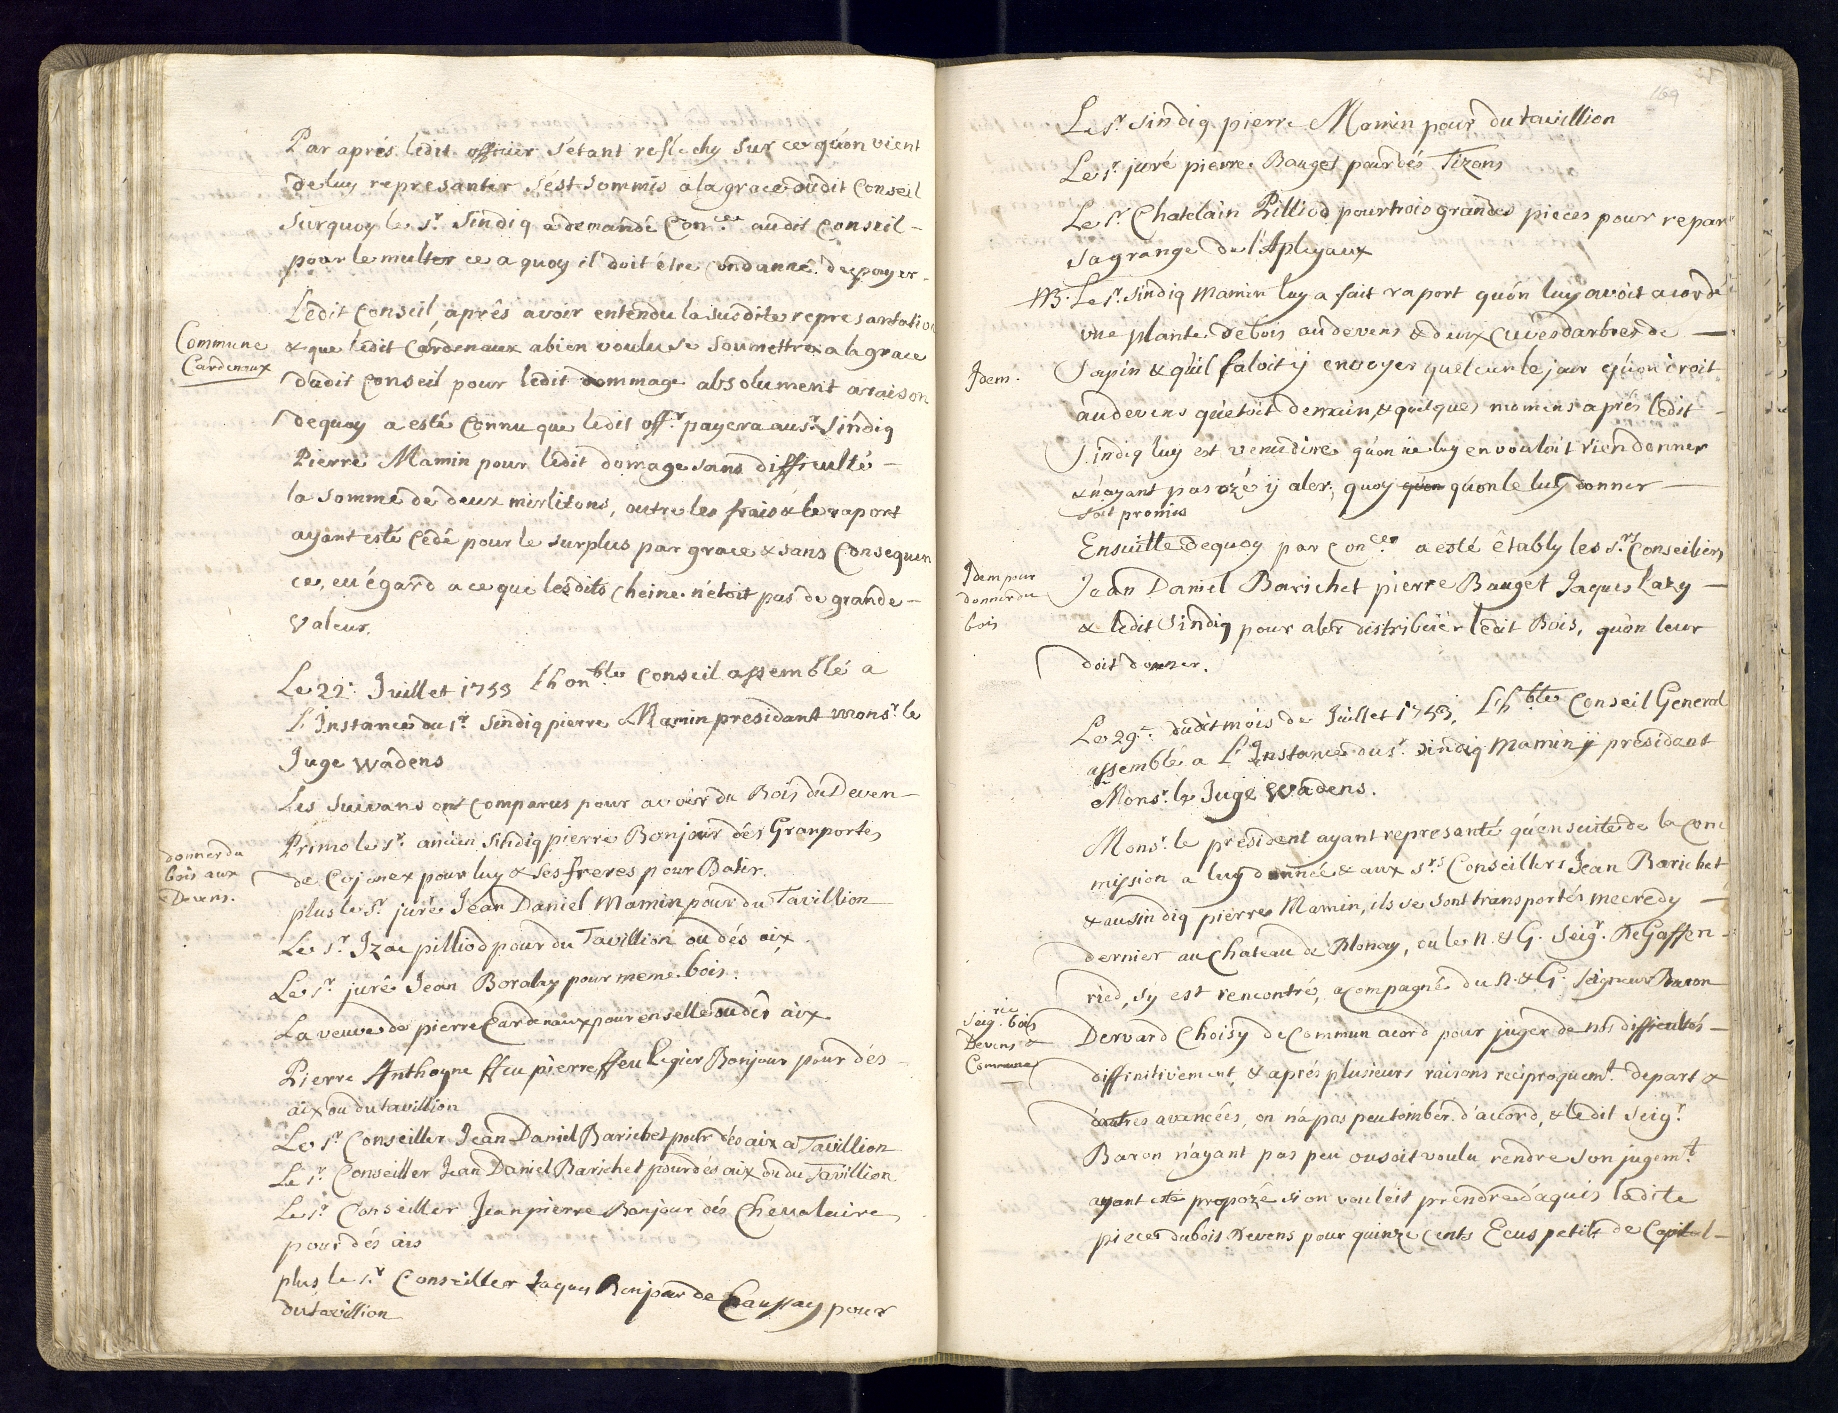 Par aprés ledit officier s'étant reflechy sur ce qu'on vient
de luy represanter s'ést sommis a la grace dudit Conseil
surquoy le sr. Sindiq a demandé Con.ce audit Conseil
pour le multer ce a quoy il doit étre condanné de payer.
Commune
Cardenaux
Ledit Conseil, aprês avoir entendu la susdite represantation
& que ledit Cardenaux a bien voulu se soumettre a la grace
dudit Conseil pour ledit dommage absolument a raison
dequoy a esté Connu que ledit offr. payera au sr. Sindiq
Pierre Mamin pour ledit domage sans difficulté
la somme de deux mirlitons, outre les frais & le raport
ayant esté cédé pour le surplus par grace & sans Consequen
ce, eu égard a ce que lesdits Cheine n'étoit pas de grande
Valeur.
Le 22e. Juillet 1753 l'honble Conseil assemblé a
L'Instance du sr. Sindiq pierre Mamin presidant monsr. le
Juge Wadens
Les suivans ont comparus pour avoir du Bois du Deven
donner du
bois aux
Devens.
Primo le sr. ancien Sindiq pierre Bonjour dés Granportes
de Cojonex pour luy & ses freres pour Batir.
plus le sr. juré Jean Daniel Mamin pour du Tavillion
Le sr. Izac pilliod pour du Tavillion ou dés aix
Le sr. juré Jean Boralay pour meme bois.
La veuve de pierre Cardenaux pour enselle ou dés aix
Pierre Anthoyne ffeu pierre ffeu Legier Bonjour pour dés
aix ou du tavillion
Le sr. Conseiller Jean Daniel Barichet pour dés aix a Tavillion
Le sr. Conseiller Jean Daniel Barichet pour dés aix ou du Tavillion
Le sr. Conseiller Jean pierre Bonjour dés Chevalaire
pour dés ais
plus le sr. Conseiller Jaques Bonjour de Caussay pour
du tavillion
169
Le sr. Sindiq pierre Mamin pour du tavillion
Le sr. juré pierre Bauget pour dés Tizons
Le sr. Chatelain Pilliod pour trois grandes pieces pour repar
sa grange de l'Apleyaux
NB. Le sr. Sindiq Mamin luy a fait raport qu'on luy avoit acordé
une plante de bois au devens & deux Cuves d'arbres de
Idem.
Sapin & qu'il faloit ÿ envoyer quelcun le jour qu'on iroit
au devens qu'etoit demain, & quelques momens aprés ledit
Sindiq luy est venu dire qu'on ne luy en vouloit rien donner
& n'ayant pas ozé ÿ aler, quoy qu'on qu'on le luy donner
soit promis
Ensuitte dequoy par Con.ce a esté étably les srs. Conseiliers
Idem pour
donner du
bois
Jean Daniel Barichet pierre Bauget Jaques Taky
& ledit Sindiq pour aler distribuër ledit Bois, qu'on leur
doit donner.
Le 29e. dudit mois de Juillet 1753. L'hble Conseil General
assemblé a L'Instance du sr. Sindiq Mamin ÿ présidant
Monsr. le Juge Wadens.
Monsr. le président ayant represanté qu'ensuite de la Com
mission a luy donnée & aux srs. Conseillers Jean Barichet
& au sindiq pierre Mamin, ils se sont transportés mecredy
dernier au Chateau de Blonay, où le N. & G. Seigr. De Gaffen
ried, s'y est rencontré, acompagné du N. & G. Seigneur Baron
Seigrie. bois
Devens &
Commune
Dervard Choisy de Commun acord pour juger de nos difficultés
diffinitivement, & aprés plusieurs raisons reciproquemt. de part &
d'autres avancées, on n'a pas peu tomber d'acord, & ledit Seigr.
Baron n'ayant pas peu ou soit voulu rendre son jugemt.
ayant esté propozé si on vouloit prendre d'aquis ladite
piece du bois Devens pour quinze Cents Ecus petits de Capital